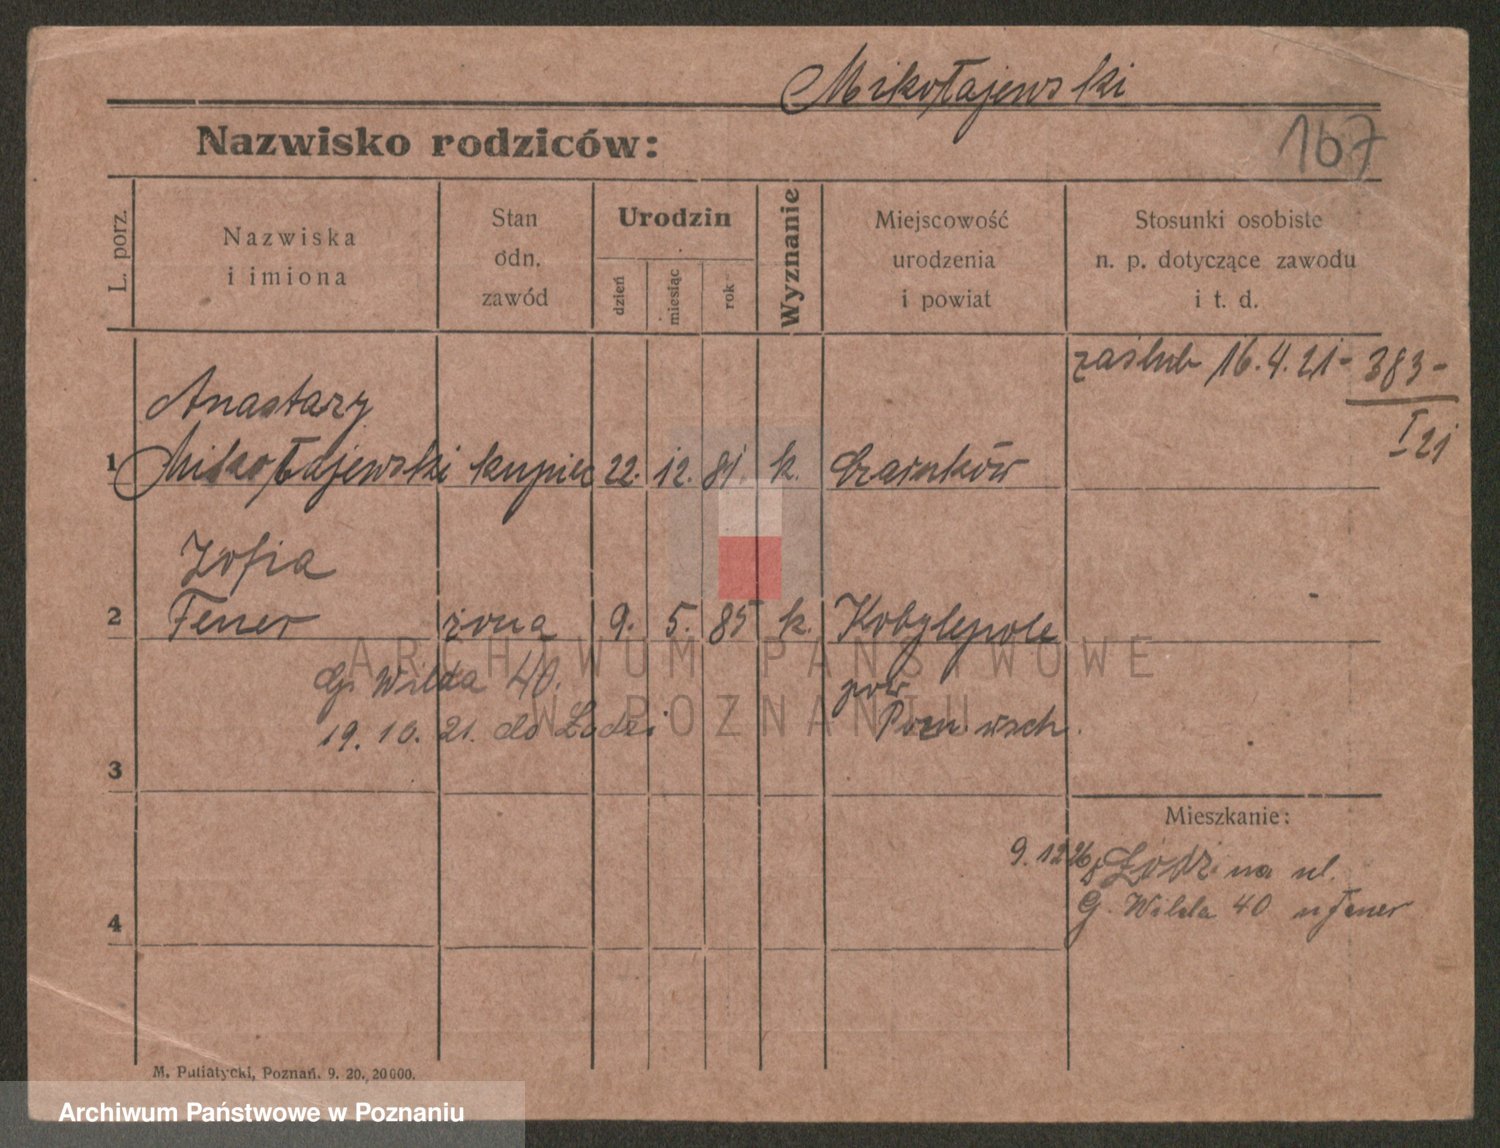 Mikołajewski
Nazwisko rodziców:
167
L. porz.
Nazwiska
i imiona
Stan
odn.
zawód
Urodzin
dzień
miesiąc
rok
Wyznanie
Miejscowość
urodzenia
i powiat
Stosunki osobiste
n. p. dotyczące zawodu
i t. d.
zaślub 16.4.21 - 383 -
I 21
Anastazy
1 Mikołajewski kupiec 22. 12. 81. k. Czarnków
Zofia
2 Fener żona 9. 5. 85 k. Kobylepole
G. Wilda 40. pow
19. 10. 21. do Łodzi Pozn. wsch.
3
Mieszkanie:
9. 12 26 Łodzi na ul.
G. Wilda 40 u Fener
4
M. Putiatycki, Poznań. 9. 20. 20000.
ARCHIWUM PAŃSTWOWE
W POZNANIU
Archiwum Państwowe w Poznaniu